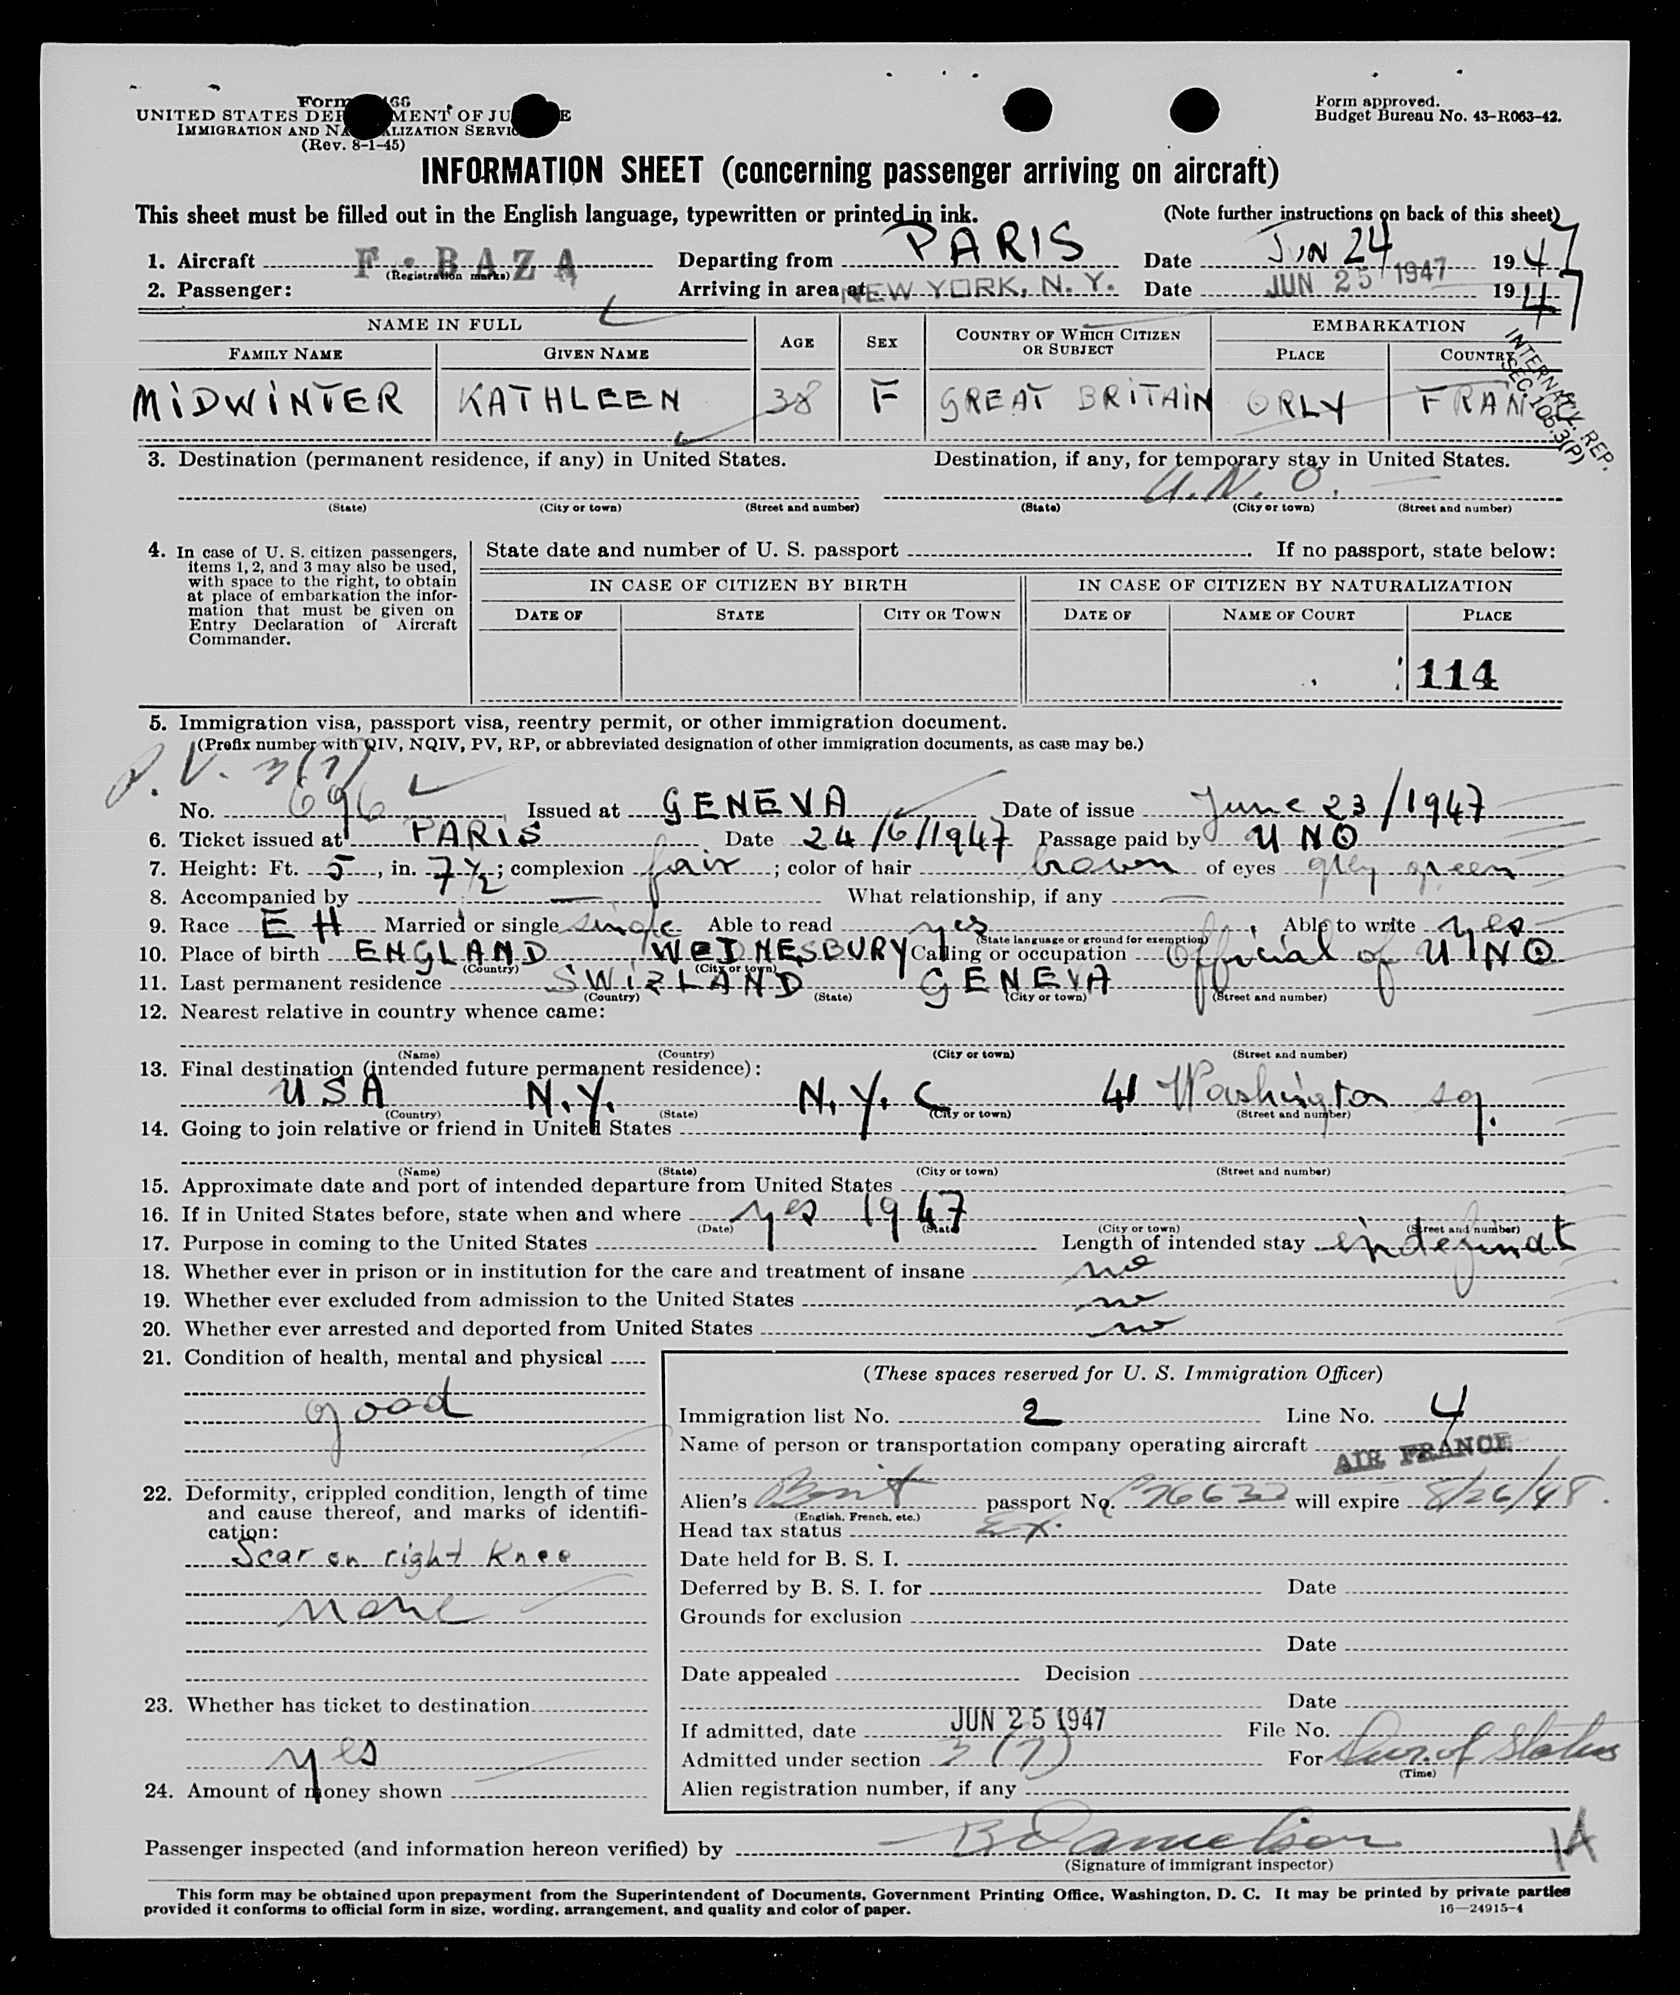 Form 466
UNITED STATES DEPARTMENT OF JUSTICE
IMMIGRATION AND NATURALIZATION SERVICE
(Rev. 8-1-45)
Form approved.
Budget Bureau No. 43-R063-42.
INFORMATION SHEET (concerning passenger arriving on aircraft)
This sheet must be filled out in the English language, typewritten or printed in ink. (Note further instructions on back of this sheet)
1. Aircraft F-BAZA (Registration marks) Departing from PARIS Date JUN 24 1947
2. Passenger: Arriving in area at NEW YORK, N. Y. Date JUN 25 1947 1947
NAME IN FULL AGE SEX COUNTRY OF WHICH CITIZEN OR SUBJECT EMBARKATION
FAMILY NAME GIVEN NAME PLACE COUNTRY
MIDWINTER KATHLEEN 38 F GREAT BRITAIN ORLY FRAN
INTERNAT'L. REP.
SEC. 105.3(P)
3. Destination (permanent residence, if any) in United States. Destination, if any, for temporary stay in United States.
U.N.O.
(State) (City or town) (Street and number) (State) (City or town) (Street and number)
4. In case of U. S. citizen passengers, items 1, 2, and 3 may also be used, with space to the right, to obtain at place of embarkation the information that must be given on Entry Declaration of Aircraft Commander.
State date and number of U. S. passport . If no passport, state below:
IN CASE OF CITIZEN BY BIRTH IN CASE OF CITIZEN BY NATURALIZATION
DATE OF STATE CITY OR TOWN DATE OF NAME OF COURT PLACE
114
5. Immigration visa, passport visa, reentry permit, or other immigration document.
(Prefix number with QIV, NQIV, PV, RP, or abbreviated designation of other immigration documents, as case may be.)
P.V. 3(7)
No. 696 Issued at GENEVA Date of issue June 23/1947
6. Ticket issued at PARIS Date 24/6/1947 Passage paid by UNO
7. Height: Ft. 5, in. 7½; complexion fair; color of hair brown of eyes grey green
8. Accompanied by — What relationship, if any —
9. Race EH Married or single single Able to read yes, Able to write yes
(State language or ground for exemption)
10. Place of birth ENGLAND WEDNESBURY Calling or occupation Official of UNO
(Country) (City or town)
11. Last permanent residence SWIZLAND GENEVA
(Country) (State) (City or town) (Street and number)
12. Nearest relative in country whence came:
(Name) (Country) (City or town) (Street and number)
13. Final destination (intended future permanent residence):
USA N.Y. N.Y.C 41 Washington sq.
(Country) (State) (City or town) (Street and number)
14. Going to join relative or friend in United States
(Name) (State) (City or town) (Street and number)
15. Approximate date and port of intended departure from United States
16. If in United States before, state when and where yes 1947
(Date) (State) (City or town) (Street and number)
17. Purpose in coming to the United States Length of intended stay indefinat
18. Whether ever in prison or in institution for the care and treatment of insane no
19. Whether ever excluded from admission to the United States no
20. Whether ever arrested and deported from United States no
21. Condition of health, mental and physical
good
22. Deformity, crippled condition, length of time and cause thereof, and marks of identification:
Scar on right knee
none
23. Whether has ticket to destination
yes
24. Amount of money shown
(These spaces reserved for U. S. Immigration Officer)
Immigration list No. 2 Line No. 4
Name of person or transportation company operating aircraft
AIR FRANCE
Alien's Brit passport No. will expire 8/26/48.
(English, French, etc.)
Head tax status Ex.
Date held for B. S. I.
Deferred by B. S. I. for Date
Grounds for exclusion
Date
Date appealed Decision
Date
If admitted, date JUN 25 1947 File No.
Admitted under section 3(7) For Dur. of Status
(Time)
Alien registration number, if any
Passenger inspected (and information hereon verified) by
(Signature of immigrant inspector)
This form may be obtained upon prepayment from the Superintendent of Documents, Government Printing Office, Washington, D. C. It may be printed by private parties
provided it conforms to official form in size, wording, arrangement, and quality and color of paper.
16—24915-4